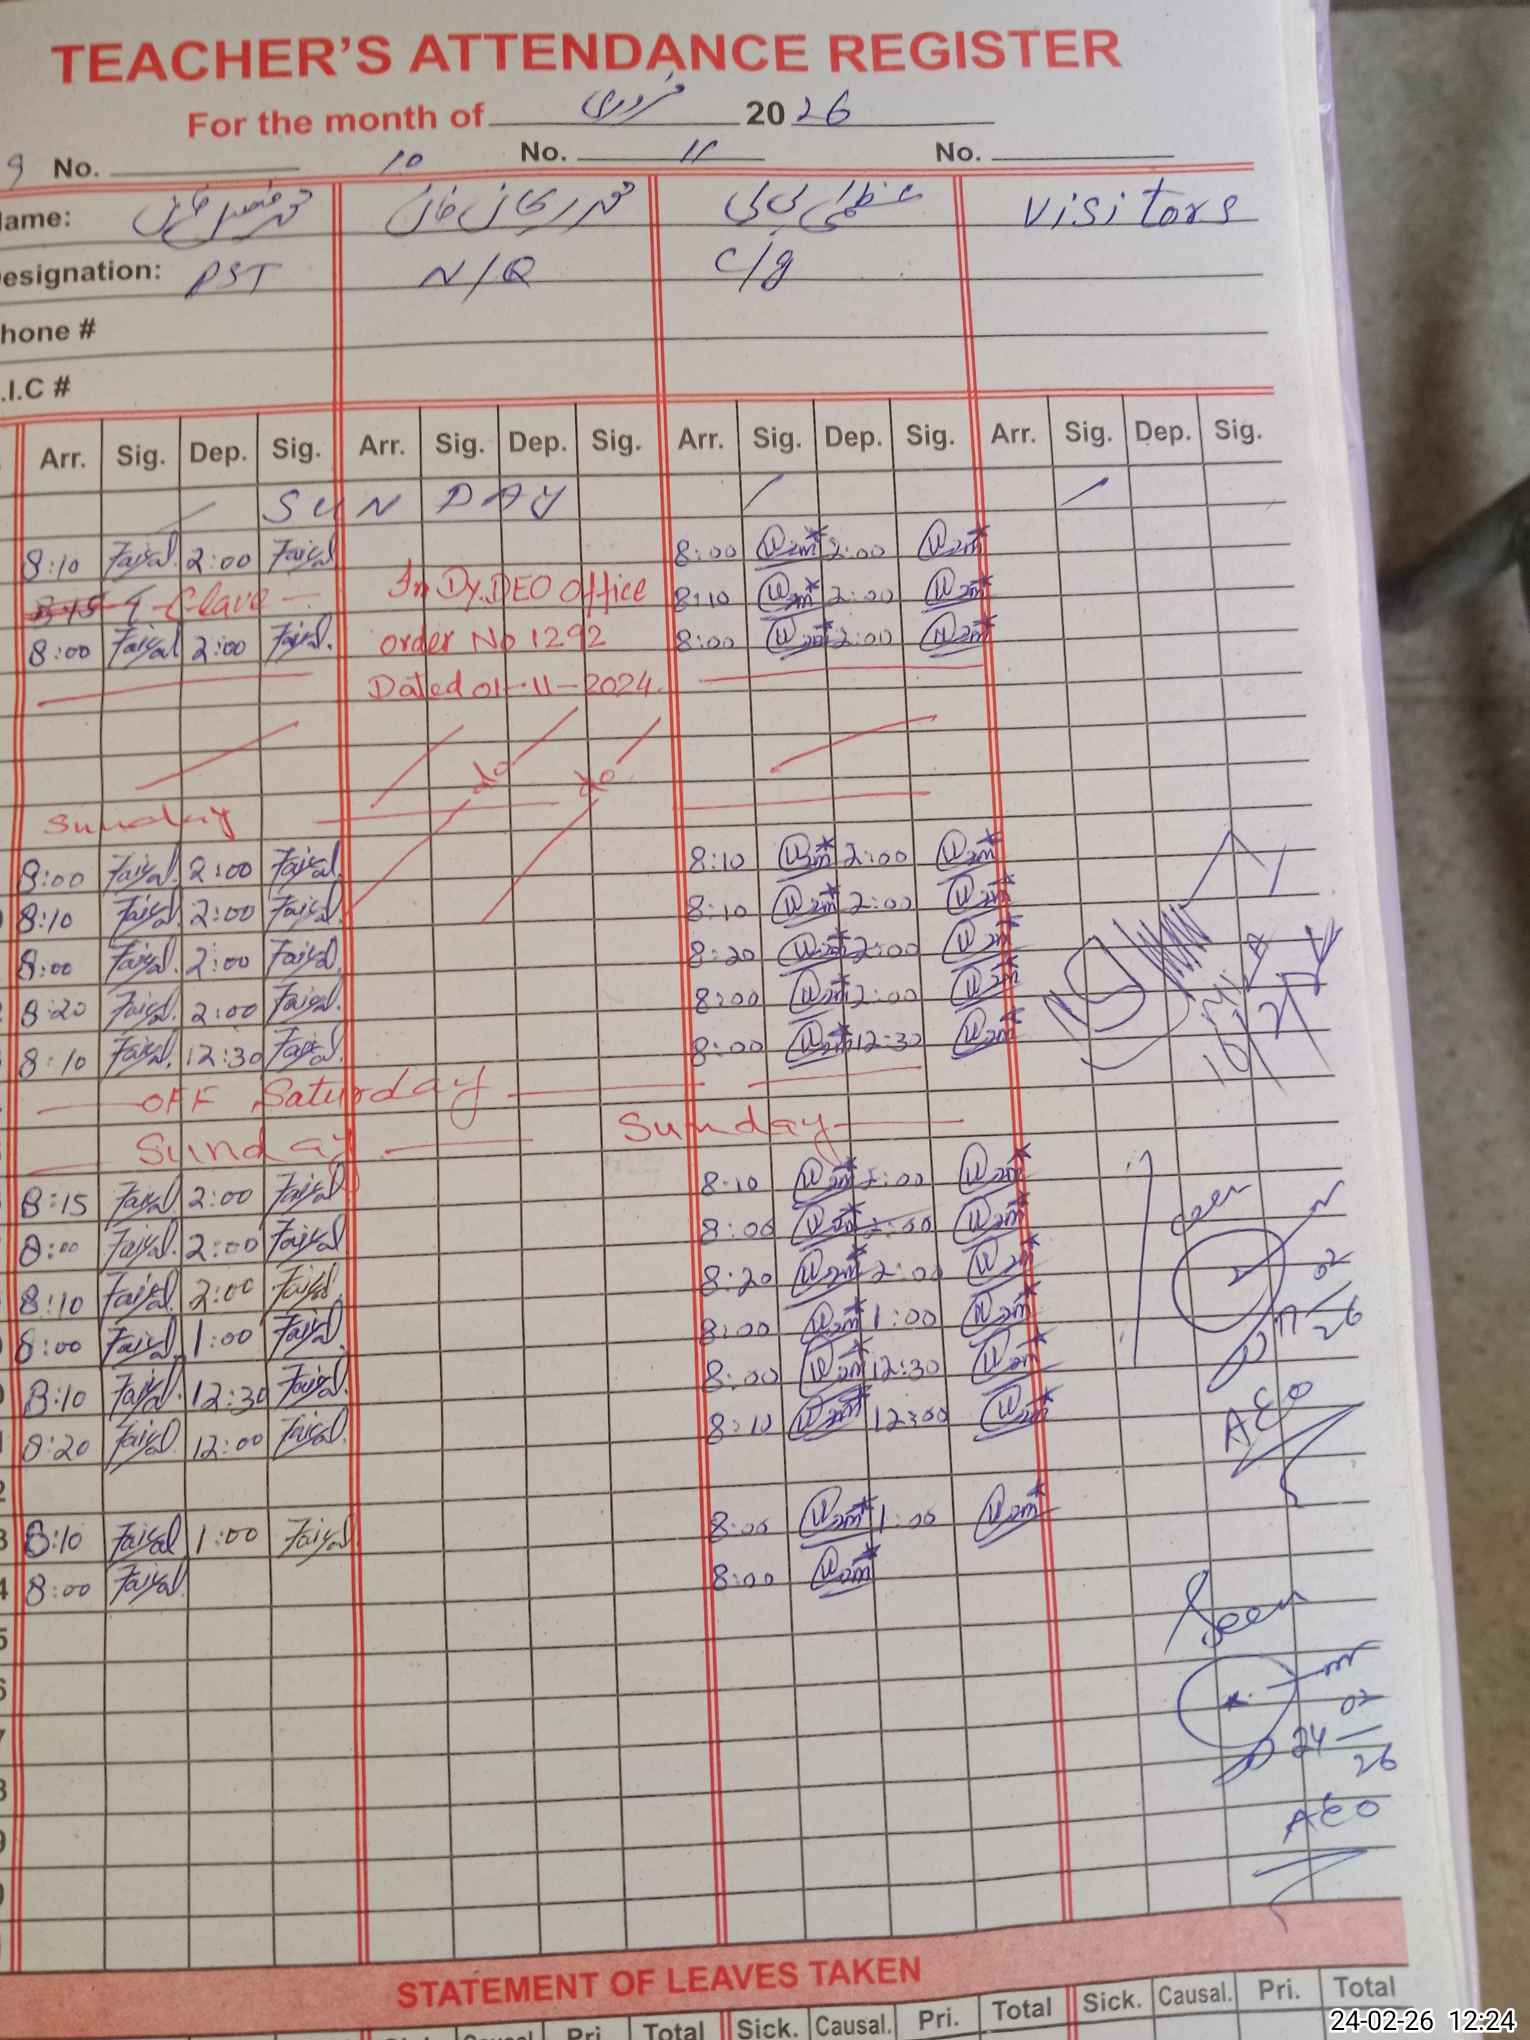 TEACHER'S ATTENDANCE REGISTER
For the month of فروری 2026
9 No. 10 No. 11 No.
ame: محمد فیصل خان محمد ریحان خان عظمیٰ بی بی Visitors
esignation: PST N/Q C/g
hone #
.I.C #
Arr. Sig. Dep. Sig. Arr. Sig. Dep. Sig. Arr. Sig. Dep. Sig. Arr. Sig. Dep. Sig.
SUNDAY
8:10 Faisal 2:00 Faisal 8:00 2:00
In Dy.DEO Office 8:10 2:00
8:00 Faisal 2:00 Faisal. order No 1292 8:00 2:00
Dated 01-11-2024
do do
Sunday
8:00 Faisal 2:00 Faisal 8:10 2:00
8:10 Faisal 2:00 Faisal 8:10 2:00
8:00 Faisal 2:00 Faisal 8:20 2:00
8:20 Faisal 2:00 Faisal 8:00 2:00
8:10 Faisal 12:30 Faisal 8:00 12:30
10/2
OFF Saturday
Sunday Sunday
8:15 Faisal 2:00 Faisal 8:10 2:00
8:00 Faisal 2:00 Faisal 8:00 2:00
Seen
8:10 Faisal 2:00 Faisal 8:20 2:00
8:00 Faisal 1:00 Faisal 8:00 1:00
17 02 26
8:10 Faisal 12:30 Faisal 8:00 12:30
8:20 Faisal 12:00 Faisal 8:10 12:00
AEO
2
3 8:10 Faisal 1:00 Faisal 8:00 1:00
4 8:00 Faisal 8:00
5
Seen
6
7
24 02 26
8
AEO
9
0
STATEMENT OF LEAVES TAKEN
Pri. Total Sick. Causal. Pri. Total Sick. Causal. Pri. Total
24-02-26 12:24